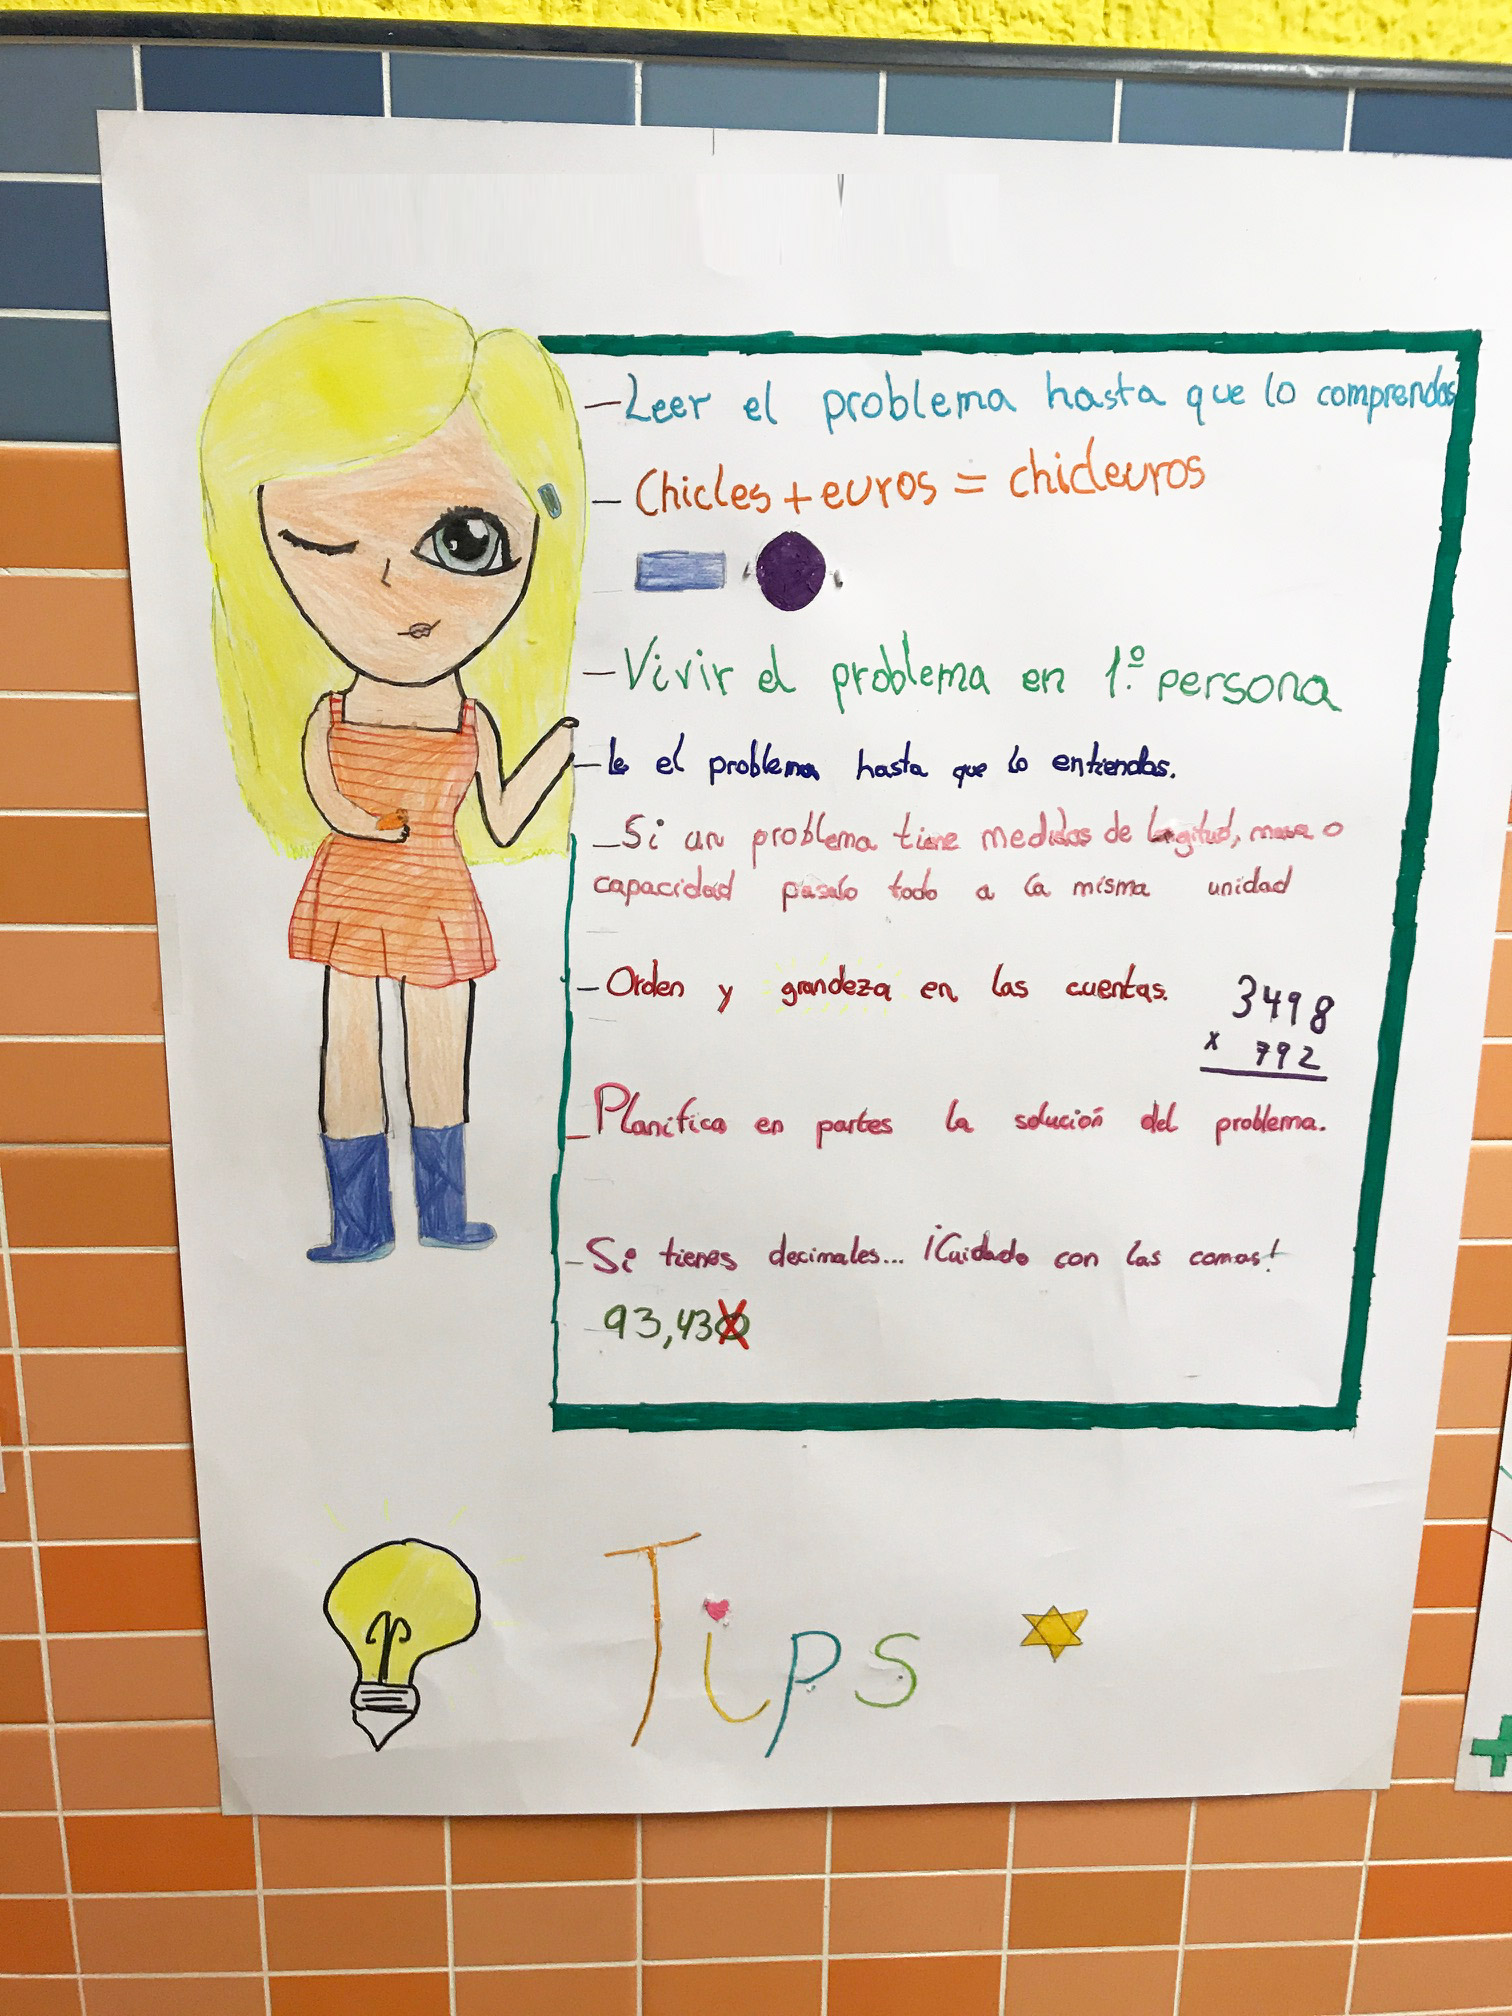 - Leer el problema hasta que lo comprendas
- Chicles + euros = chicleuros
- Vivir el problema en 1.º persona
- le el problema hasta que lo entiendas.
- Si un problema tiene medidas de longitud, masa o
capacidad pasalo todo a la misma unidad
- Orden y grandeza en las cuentas.
3498
x 792
- Planifica en partes la solución del problema.
- Si tienes decimales... ¡Cuidado con las comas!
93,430
Tips